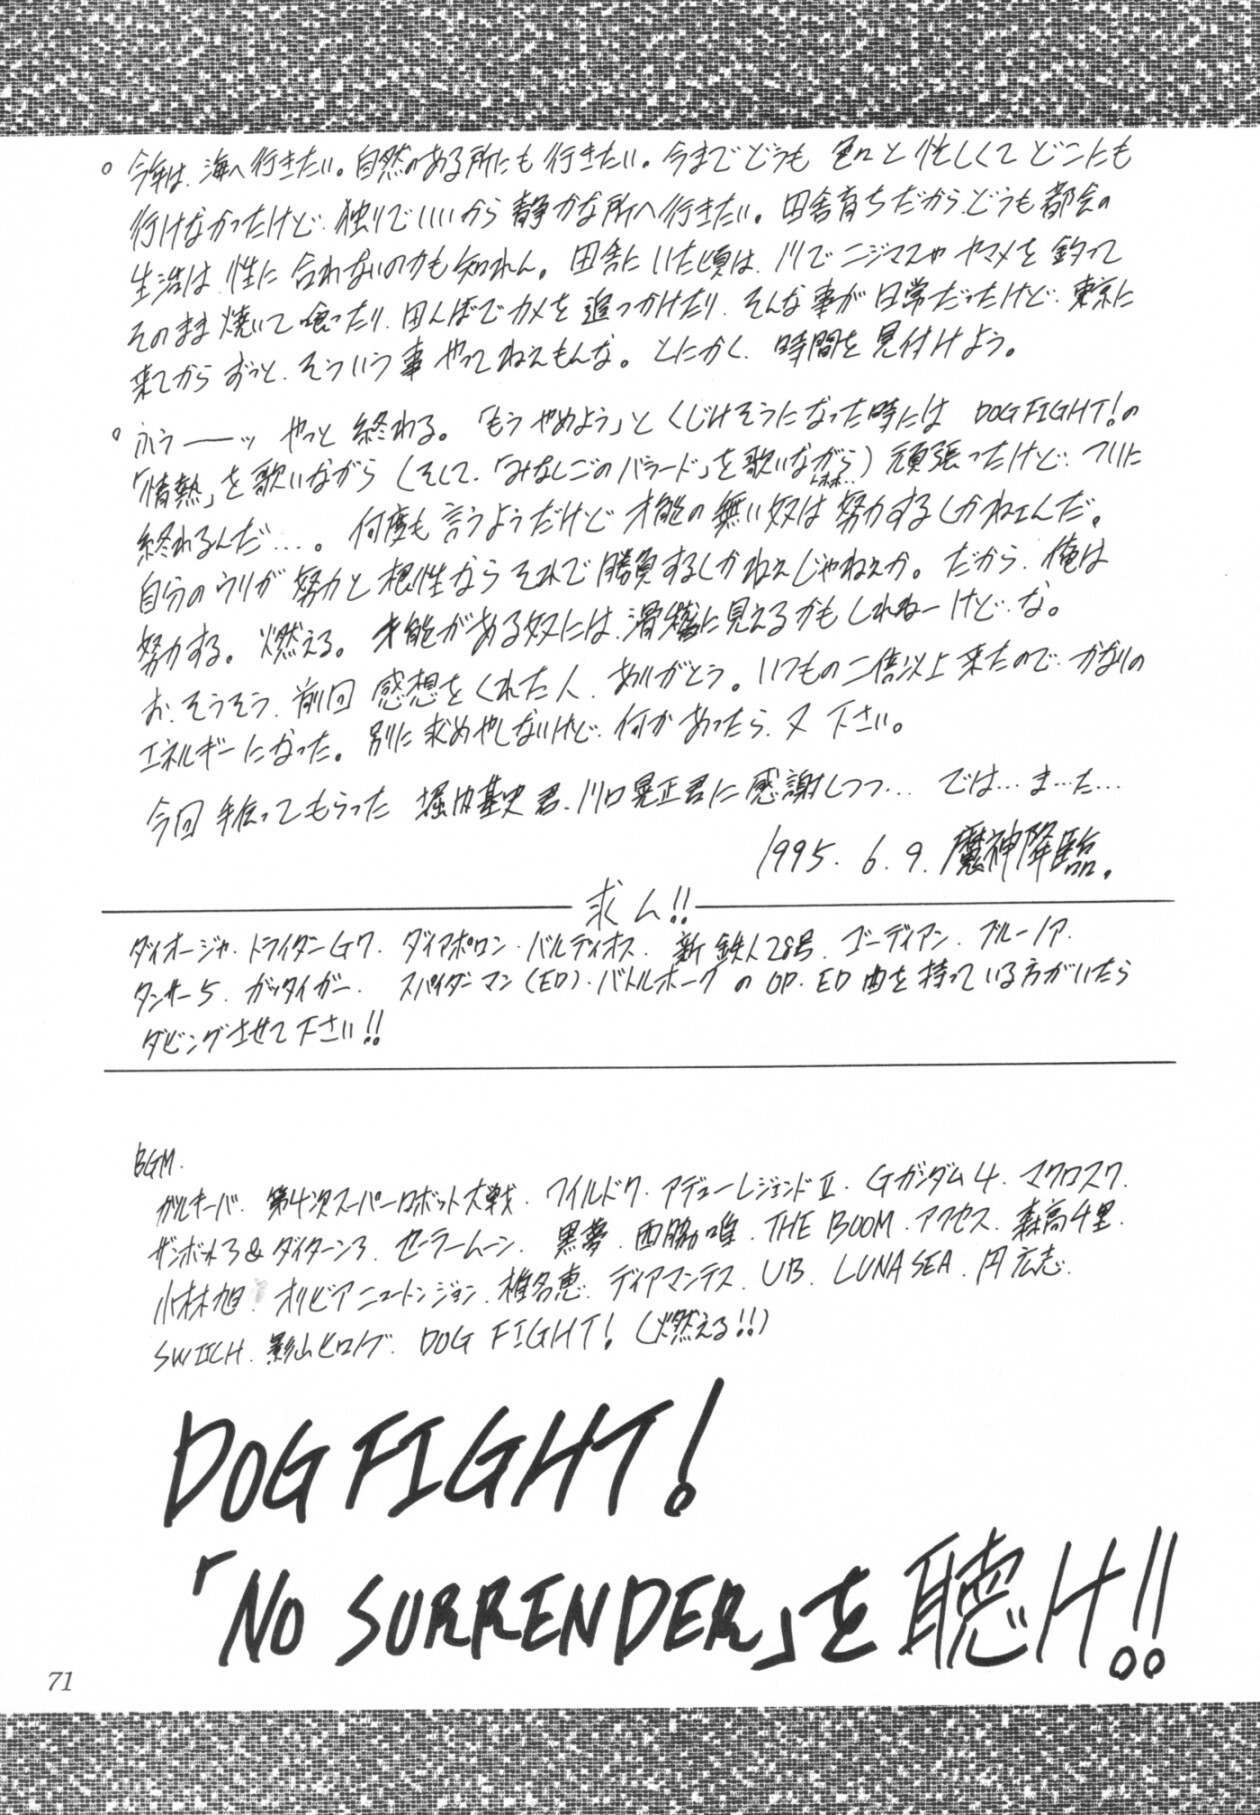 。今年は、海へ行きたい。自然のある所にも行きたい。今までどうも色々と忙しくてどこにも
行けなかったけど、独りでいいから静かな所へ行きたい。田舎育ちだから、どうも都会の
生活は、性に合わないのかも知れん。田舎にいた頃は、川でニジマスや ヤマメを釣って
そのまま焼いて喰ったり、田んぼでカメを追っかけたり、そんな事が日常だったけど、東京に
来てからずっと、そういう事やってねえもんな。とにかく、時間を見付けよう。
。ふうーーッ やっと終わる。「もうやめよう」とくじけそうになった時には DOG FIGHT!の
「情熱」を歌いながら(そして、「みなしごのバラード」を歌いながら)頑張ったけど、ついに
終われるんだ…。何度も言うようだけど才能の無い奴は努力するしかねェんだ。
自分のウリが努力と根性ならそれで勝負するしかねえじゃねえか。だから、俺は
努力する。燃える。才能がある奴には、滑稽に見えるかもしれねーけど、な。
お、そうそう、前回感想をくれた人、ありがとう。いつもの二倍以上来たので、かなりの
エネルギーになった。別に求めやしないけど、何かあったら、又下さい。
今回手伝ってもらった 堀内基史君、川口晃正君に感謝しつつ… では…ま…た…
1995. 6. 9. 魔神降臨.
求ム!!
ダイオージャ・トライダーG7・ダイアポロン・バルディオス・新鉄人28号・ゴーディアン・ブルーノア・
タンサー5・ガッタイガー・スパイダーマン(ED)・バトルホークの OP・ED 曲を持っている方がいたら
ダビングさせて下さい!!
BGM.
ガルキーバ・第4次スーパーロボット大戦・ワイルド7・アデューレジェンドⅡ・Gガンダム4・マクロス7・
ザンボット3&ダイターン3・セーラームーン・黒夢・西脇唯・THE BOOM・アクセス・森高千里・
小林旭・オリビアニュートンジョン・椎名恵・ディアマンテス・UB・LUNA SEA・円広志・
SWITCH・影山ヒロノブ・DOG FIGHT!(燃える!!)
DOG FIGHT!
「NO SURRENDER」を聴け!!
71